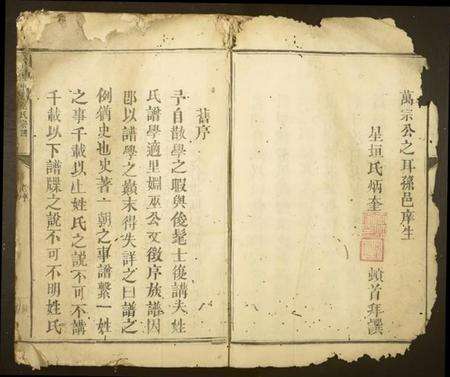 萬宗公之耳孫邑庠生
星垣氏炳奎
頓首拜譔
舊序
予自散學之暇與後髦士後講夫姓
氏譜學適里嫺巫公文徵序族譜因
即以譜學之巔末得失詳之曰譜之
例猶史也史著一朝之事譜繫一姓
之事千載以上姓氏之說不可不講
千載以下譜牒之說不可不明姓氏